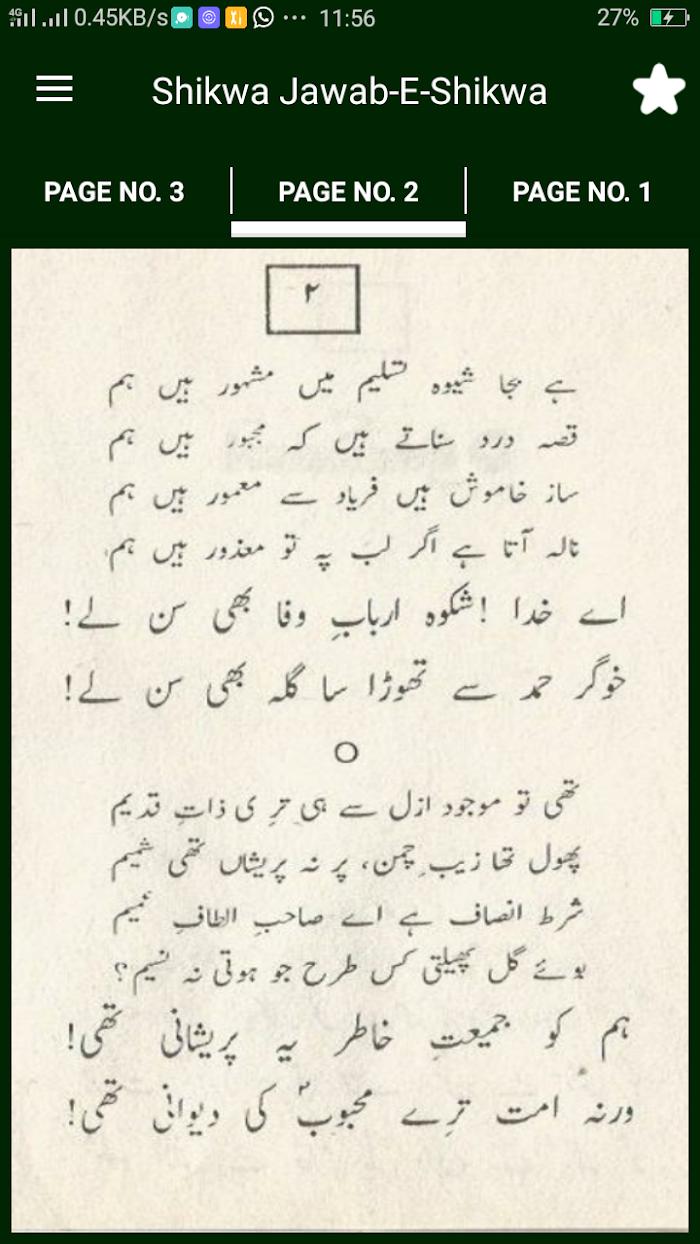 4G 0.45KB/s ... 11:56 27%
Shikwa Jawab-E-Shikwa
PAGE NO. 3 PAGE NO. 2 PAGE NO. 1
۲
ہے بجا شیوہ تسلیم میں مشہور ہیں ہم
قصہ درد سناتے ہیں کہ مجبور ہیں ہم
ساز خاموش ہیں فریاد سے معمور ہیں ہم
نالہ آتا ہے اگر لب پہ تو معذور ہیں ہم
اے خدا! شکوہ اربابِ وفا بھی سن لے!
خوگر حمد سے تھوڑا سا گلہ بھی سن لے!
تھی تو موجود ازل سے ہی تری ذاتِ قدیم
پھول تھا زیبِ چمن، پر نہ پریشاں تھی شمیم
شرط انصاف ہے اے صاحبِ الطافِ عمیم
بوئے گل پھیلتی کس طرح جو ہوتی نہ نسیم؟
ہم کو جمیعتِ خاطر یہ پریشانی تھی!
ورنہ امت ترے محبوبؐ کی دیوانی تھی!